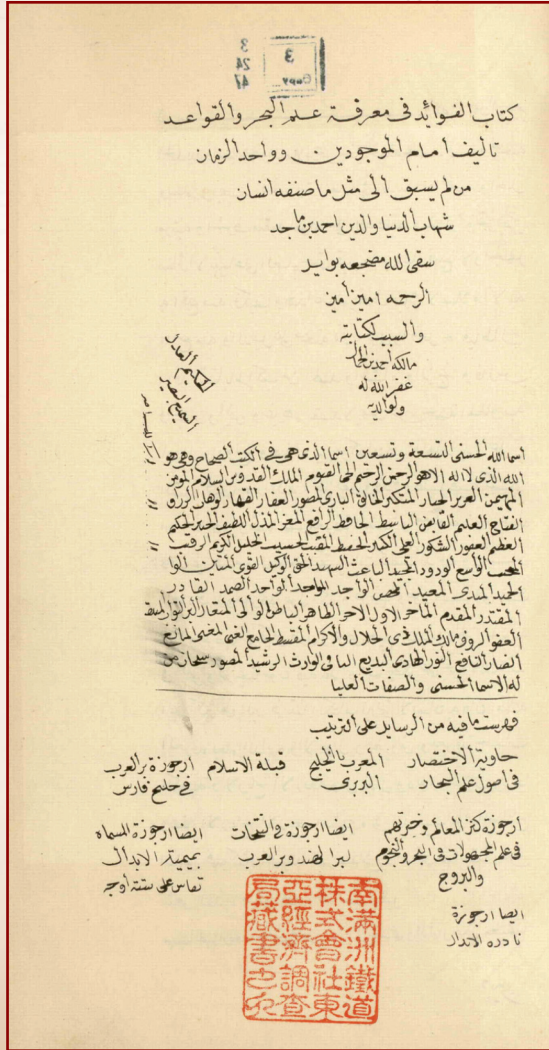 3
24
47
3
Copy
كتاب الفوائد فى معرفة علم البحر والقواعد
تاليف امام الموجودين وواحد الزمان
من لم يسبق الى مثل ما صنفه انسان
شهاب الدنيا والدين احمد بن ماجد
سقى الله مضجعه بوابد
الرحمه امين امين
والسبب لكتابته
مالكه احمد بن
غفر الله له
ولوالديه
الحكيم العدل
السميع البصير
اسما الله الحسنى التسعة وتسعين اسما الذى هى فى الكتب الصحاح وهى هو
الله الذى لا اله الا هو الرحمن الرحيم الحى القيوم الملك القدوس السلام المومن
المهيمن العزيز الجبار المتكبر الخالق البارى المصور الغفار القهار الوهاب الرزق
الفتاح العليم القابض الباسط الحافظ الرافع المعز المذل اللطيف الخبير الحكيم
العظيم الغفور الشكور العلى الكبير الحفيظ المقيت الحسيب الجليل الكريم الرقيب
المجيب الواسع الودود المجيد الباعث الشهيد الحق الوكيل القوى المتين الوا
الحميد المبدى المعيد الواجد الماجد الواحد الصمد القادر
المقتدر المقدم الماخر الاول الاخر الظاهر الباطن الوالى المتعال البر التواب
العفو الروف مالك الملك ذى الجلال والاكرام المقسط الجامع الغنى المغنى المانع
الضار النافع النور الهادى البديع الباقى الوارث الرشيد الصبور سبحان من
له الاسما الحسنى والصفات العليا
فهرست ما فيه من الرسايل على الترتيب
حاوية الاختصار المعرب بالخليج قبلة الاسلام ارجوزة بر العرب
فى اصول علم البحار البربرى فى خليج فارس
ارجوزة كنز المعالمة وخيرتهم ايضا ارجوزة فى النتخات ايضا ارجوزة المسماه
فى علم المجهولات فى البحر والنجوم لبر الهند وبر العرب بميمية الابدال
والبروج تقاس على ستة اوجه
ايضا ارجوزة
نادرة الابدال
南滿洲鐵道
株式會社東
亞經濟調查
局藏書之印